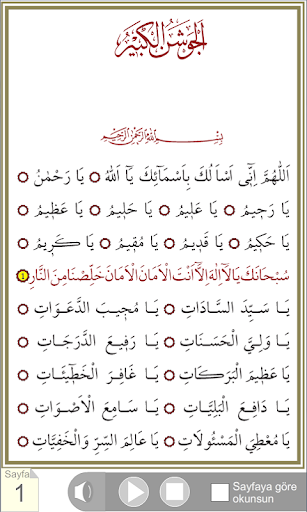 اَلْجَوْشَنُ الْكَبِيْرُ
بِسْمِ اللهِ الرَّحْمٰنِ الرَّحِيْمِ
اَللّٰهُمَّ اِنّٖٓى اَسْاَلُكَ بِاَسْمَٓائِكَ يَٓا اَللّٰهُ ۝ يَا رَحْمٰنُ
۝ يَا رَحٖيمُ ۝ يَا عَلٖيمُ ۝ يَا حَلٖيمُ ۝ يَا عَظٖيمُ
۝ يَا حَكٖيمُ ۝ يَا قَدٖيمُ ۝ يَا مُقٖيمُ ۝ يَا كَرٖيمُ
سُبْحَانَكَ يَالَٓا اِلٰهَ اِلَّٓا اَنْتَ الْاَمَانَ الْاَمَانَ خَلِّصْنَا مِنَ النَّارِ ١
يَا سَيِّدَ السَّادَاتِ ۝ يَا مُجٖيبَ الدَّعَوَاتِ
۝ يَا وَلِيَّ الْحَسَنَاتِ ۝ يَا رَفٖيعَ الدَّرَجَاتِ
۝ يَا عَظٖيمَ الْبَرَكَاتِ ۝ يَا غَافِرَ الْخَطٖٓيئَاتِ
۝ يَا دَافِعَ الْبَلِيَّاتِ ۝ يَا سَامِعَ الْاَصْوَاتِ
۝ يَا مُعْطِيَ الْمَسْئُولَاتِ ۝ يَا عَالِمَ السِّرِّ وَالْخَفِيَّاتِ
Sayfa
1
Sayfaya göre
okunsun